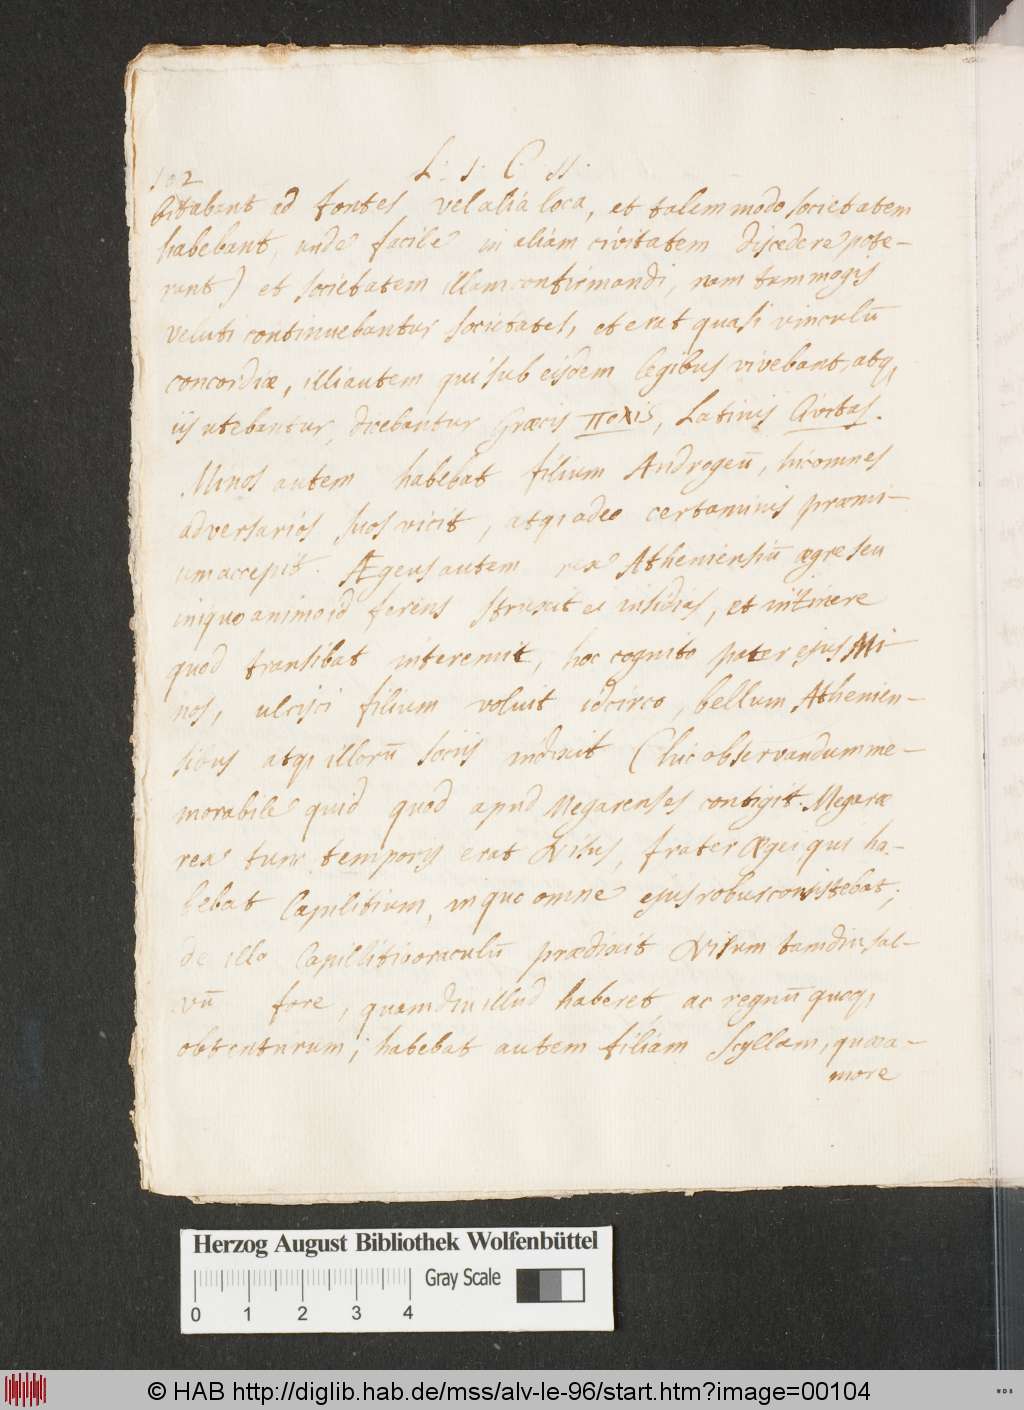 102
L. I. C. II.
bitabant ad fontes vel alia loca, et talem modo societatem
habebant, unde facile in aliam civitatem discedere pote-
rant) et societatem illam confirmandi, nam tum magis
veluti continuebantur societates, et erat quasi vinculū
concordiæ, illi autem qui sub eisdem legibus vivebant, atq,
iis utebantur, dicebantur Græcis πολις, Latinis Civitas.
Minos autem habebat filium Androgeū, hic omnes
adversarios suos vicit, atq; adeo certaminis præmi-
um accepit. Ægeus autem rex Atheniensiū ægre seu
iniquo animo id ferens struxit ei insidias, et in itinere
quod transibat interemit, hoc cognito pater ejus Mi-
nos, ulcisci filium voluit idcirco, bellum Athenien-
sibus atq; illorū sociis indixit (hic observandum me-
morabile quid quod apud Megarenses contigit. Megaræ
rex tunc temporis erat Nisus, frater Ægei qui ha-
bebat Capilitium, in quo omne ejus robur consistebat,
de illo Capillitio oraculū prædixit Nisum tamdiu sal-
vū fore, quamdiu illud haberet, ac regnū quoq,
obtenturum; habebat autem filiam Scyllam, quæ a-
more
Herzog August Bibliothek Wolfenbüttel
Gray Scale
0 1 2 3 4
© HAB http://diglib.hab.de/mss/alv-le-96/start.htm?image=00104